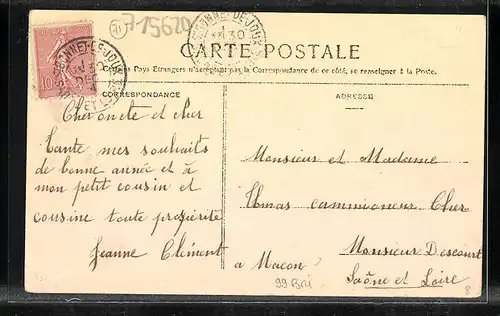 71
715620
CARTE POSTALE
Tous les Pays Etrangers n'acceptent pas la Correspondance de ce côté, se renseigner à la Poste.
CORRESPONDANCE
ADRESSE
10
30
30
Cher oncle et cher
tante mes souhaits
de bonne année et à
mon petit cousin et
cousine toute prospérite
Jeanne Clément
Monsieur et Madame
camionneur Cher
Monsieur Descourt
a Macon
Saône et Loire
99 Bri
8